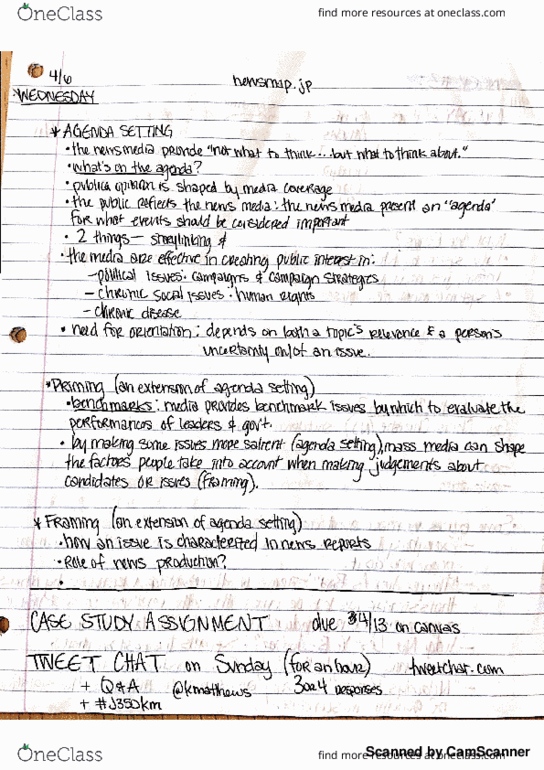 OneClass
find more resources at oneclass.com
4/6
newsmap.jp
WEDNESDAY
* AGENDA SETTING
• the news media provide "not what to think... but what to think about."
• what's on the agenda?
• publica opinion is shaped by media coverage
• the public reflects the news media: the news media present an "agenda"
for what events should be considered important
• 2 things — storylinking &
• the media are effective in creating public interest in:
– political issues · campaigns & campaign strategies
– chronic social issues · human rights
– chronic disease
• need for orientation: depends on both a topic's relevance & a person's
uncertainty of an issue.
• Priming (an extension of agenda setting)
• benchmarks: media provides benchmark issues by which to evaluate the
performances of leaders & gov't.
• by making some issues more salient (agenda setting), mass media can shape
the factors people take into account when making judgements about
candidates or issues (framing).
* Framing (an extension of agenda setting)
• how an issue is characterized in news reports
• Role of news production?
•
CASE STUDY ASSIGNMENT due 4/13 on canvas
TWEET CHAT on Sunday (for an hour) tweetchat.com
+ Q&A @kmatthews 3 or 4 responses
+ #J350km
OneClass
find more resources at oneclass.com
Scanned by CamScanner